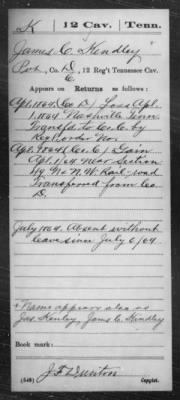 K 12 Cav. Tenn.
James C. Hendley
Pvt, Co. D, 12 Reg't Tennessee Cav.
E
Appears on Returns as follows:
Apl. 1864. (Co D) Loss Apl.
1 1864 Nashville Tenn.
Transf'd to Co. E. by
Reg't order No.
Apl. 1864 (Co. E.) Gain
Apl. 1/64 near Section
49 N & N. W. Rail-road
Transferred from Co.
D.
July 1864. Absent without
leave since July 6/64
* Name appears also as
Jas. Henley, James C. Hindley
Book mark:
(546)
Copyist.